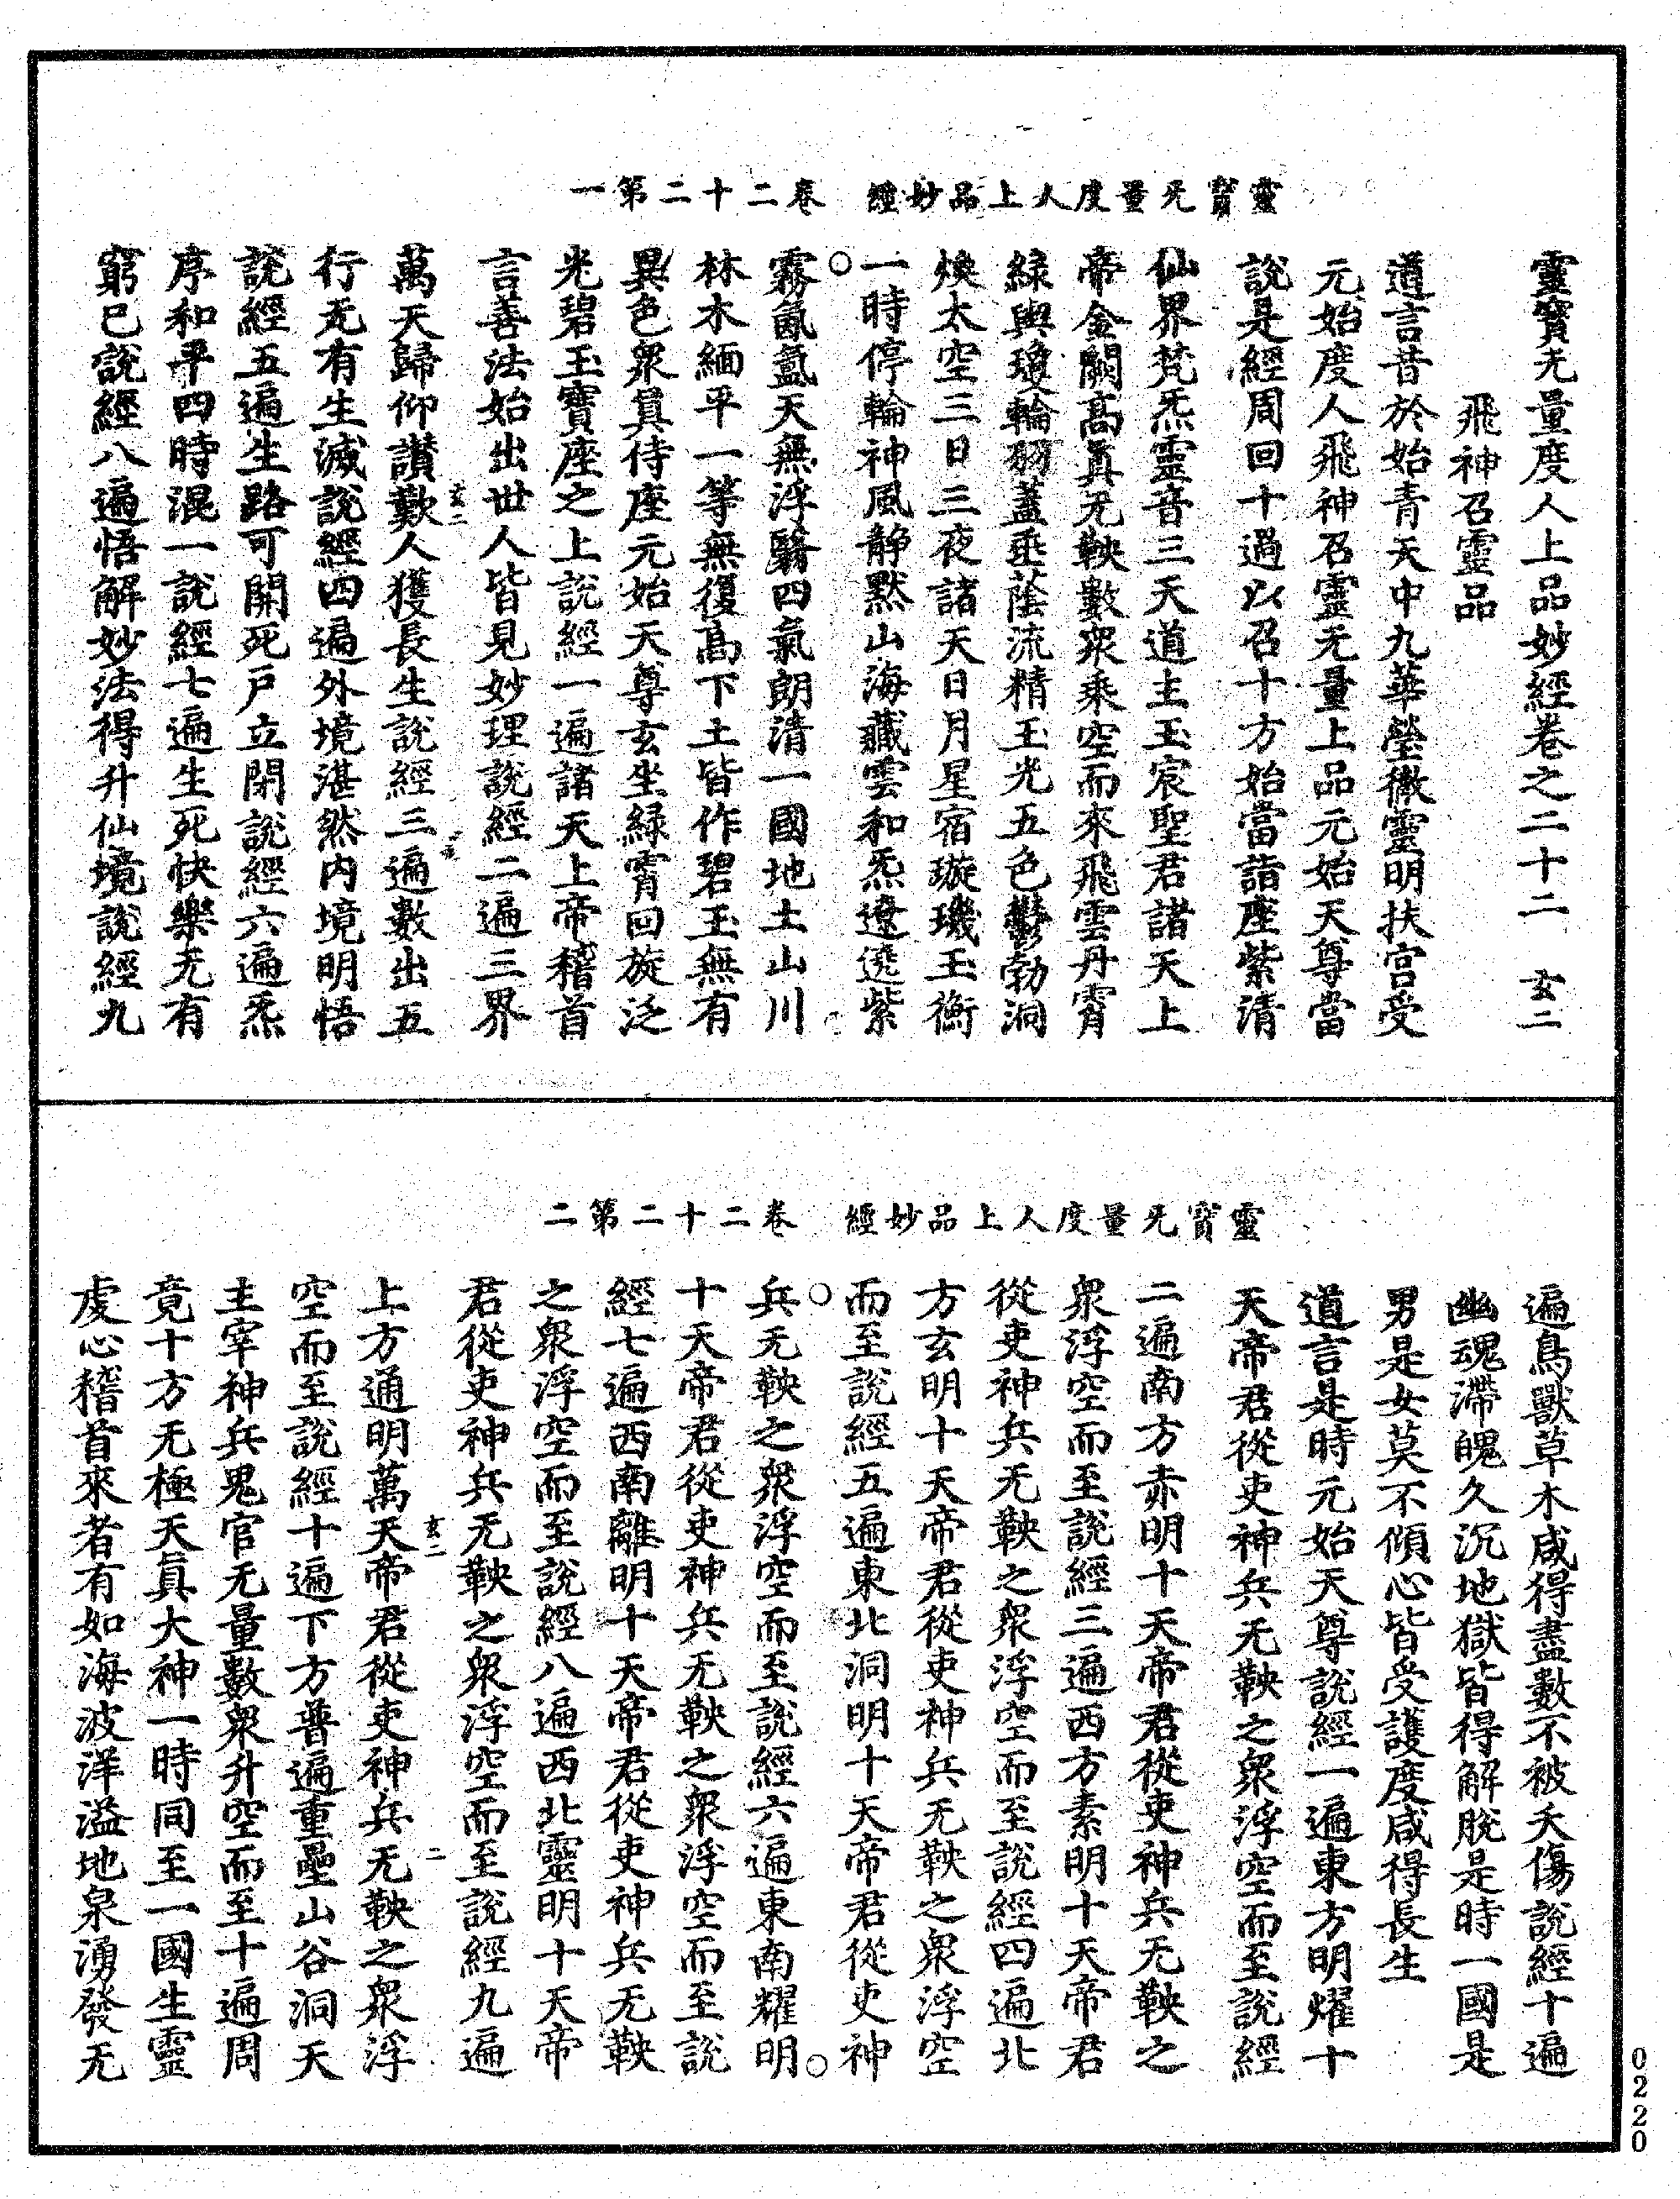 靈寶无量度人上品妙經　卷二十二第一
靈寶无量度人上品妙經卷之二十二　玄二
飛神召靈品
道言昔於始青天中九華瑩徹靈明扶宫受
元始度人飛神召靈无量上品元始天尊當
說是經周回十過以召十方始當詣座紫清
仙界梵炁靈音三天道主玉宸聖君諸天上
帝金闕高眞无鞅數衆乘空而來飛雲丹霄
綠輿瓊輪羽蓋垂蔭流精玉光五色鬱勃洞
煥太空三日三夜諸天日月星宿璇璣玉衡
一時停輪神風静默山海藏雲和炁遼遶紫
霧氤氳天無浮翳四氣朗清一國地土山川
林木緬平一等無復高下土皆作碧玉無有
異色衆眞侍座元始天尊玄坐綠霄回旋泛
光碧玉寶座之上說經一遍諸天上帝稽首
言善法始出世人皆見妙理說經二遍三界
萬天歸仰讃歎人獲長生說經三遍數出五
玄二
行无有生滅說經四遍外境湛然内境明悟
說經五遍生路可開死戶立閉說經六遍炁
序和平四時混一說經七遍生死快樂无有
窮已說經八遍悟解妙法得升仙境說經九
靈寶无量度人上品妙經　卷二十二第二
遍鳥獸草木咸得盡數不被夭傷說經十遍
幽魂滯魄久沉地獄皆得解脫是時一國是
男是女莫不傾心皆受護度咸得長生
道言是時元始天尊說經一遍東方明耀十
天帝君從吏神兵无鞅之衆浮空而至說經
二遍南方赤明十天帝君從吏神兵无鞅之
衆浮空而至說經三遍西方素明十天帝君
從吏神兵无鞅之衆浮空而至說經四遍北
方玄明十天帝君從吏神兵无鞅之衆浮空
而至說經五遍東北洞明十天帝君從吏神
兵无鞅之衆浮空而至說經六遍東南耀明
十天帝君從吏神兵无鞅之衆浮空而至說
經七遍西南離明十天帝君從吏神兵无鞅
之衆浮空而至說經八遍西北靈明十天帝
君從吏神兵无鞅之衆浮空而至說經九遍
上方通明萬天帝君從吏神兵无鞅之衆浮
玄二　二
空而至說經十遍下方普遍重壘山谷洞天
主宰神兵鬼官无量數衆升空而至十遍周
竟十方无極天眞大神一時同至一國生靈
虔心稽首來者有如海波洋溢地泉湧發无
0220